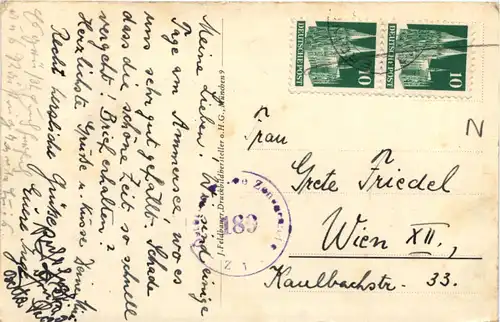 Meine Lieben! Wir sind einige
Tage am Ammersee, wo es
uns sehr gut gefällt. Schade
dass die schöne Zeit so schnell
vergeht! Brief erhalten?
Herzlichste Grüsse u. Küsse
Recht herzliche Grüsse
J. Feldbauer, Druckbildhersteller o.H.G., München 9
DEUTSCHE POST
10
DEUTSCHE POST
10
Z
189
Frau
Grete Friedel
Wien XII.,
Kaulbachstr. 33.